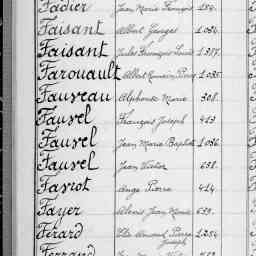 Fadier Jean Marie François 134.
Faisant Albert Georges 1.034.
Faisant Jules François Louis 1.387.
Farouault Albert Romain Pierre 1.035.
Fauveau Alphonse Marie 308.
Fauvel François Joseph 413
Fauvel Jean Marie Baptiste 1.036.
Fauvel Jean Victor 638.
Favrot Ange Pierre 414.
Fayer Alexis Jean Marie 639.
Férard Amand Pierre Joseph 1.254
Ferrand